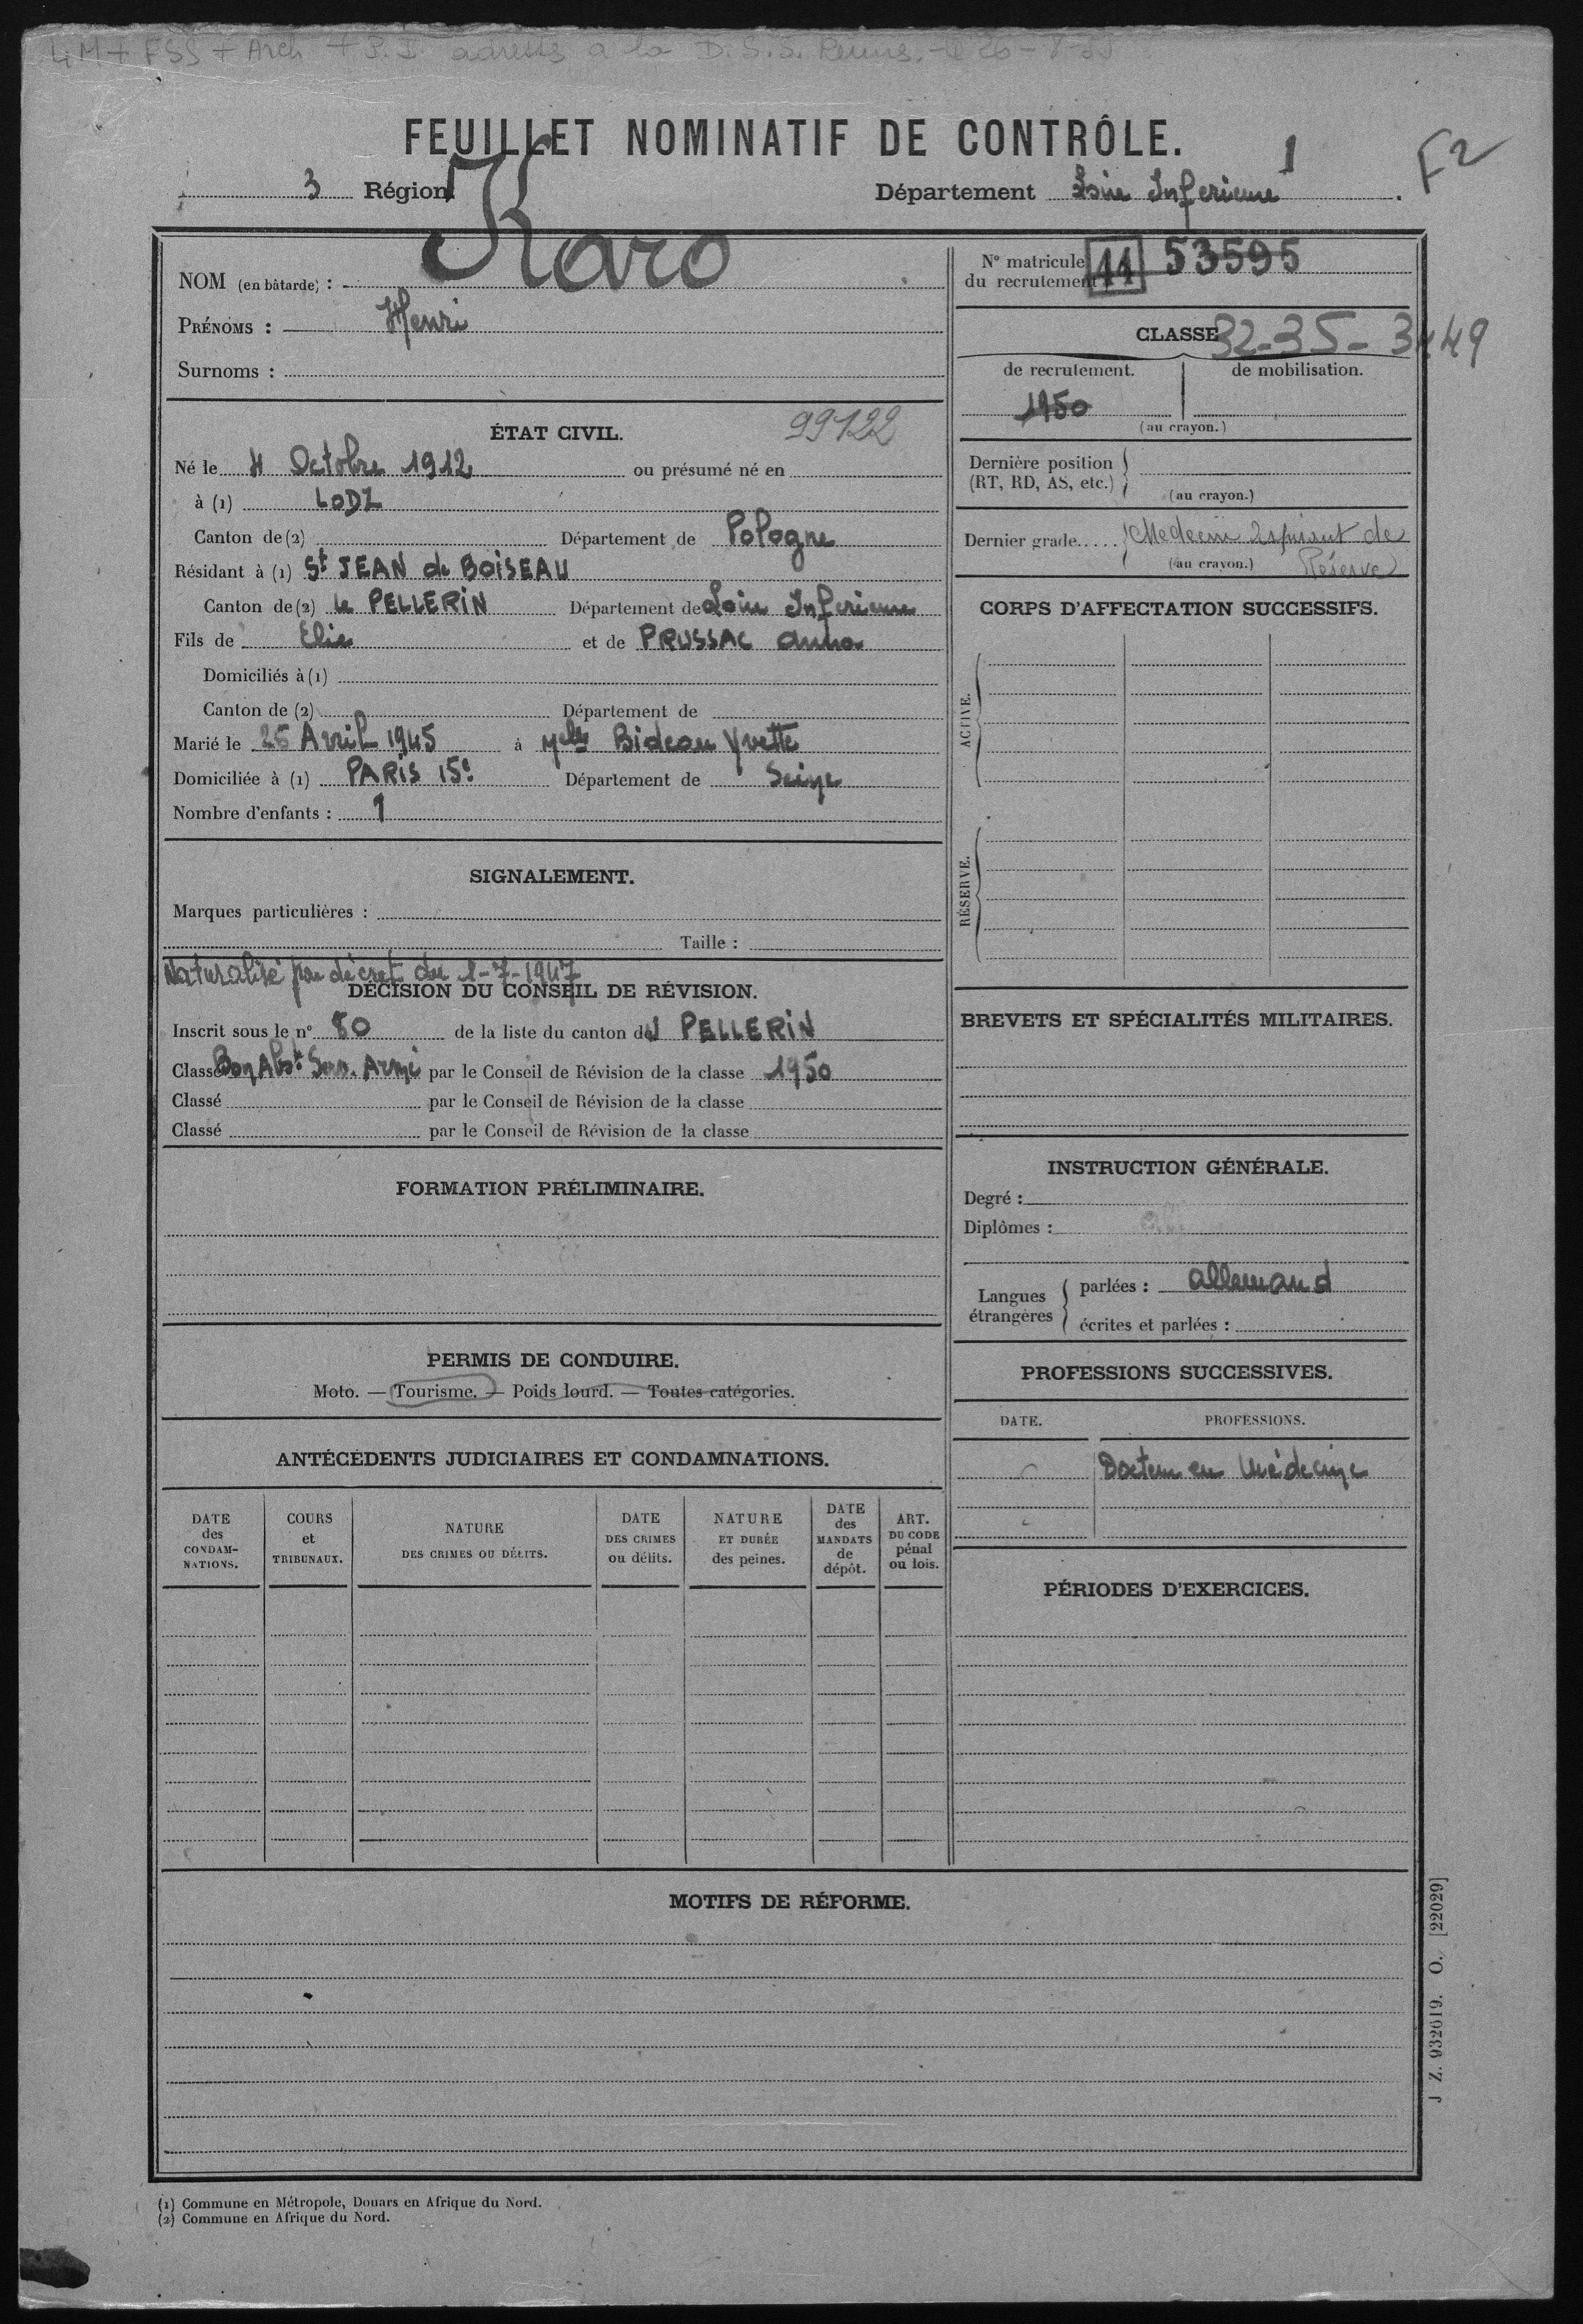 4M + FSS + Arch + P.I. adressés à la D.S.S. Rennes. le 26-8-
FEUILLET NOMINATIF DE CONTRÔLE.
F2
3 Région
Département Loire Inferieure 1.
NOM (en bâtarde) : Karo
PRÉNOMS : Henri
Surnoms :
ÉTAT CIVIL. 99122
Né le 4 Octobre 1912 ou présumé né en
à (1) LODZ
Canton de (2) Département de Pologne
Résidant à (1) St JEAN de BOISEAU
Canton de (2) le PELLERIN Département de Loire Inferieure
Fils de Elie et de PRUSSAC Anna
Domiciliés à (1)
Canton de (2) Département de
Marié le 26 Avril 1945 à Melle Bideau Yvette
Domiciliée à (1) PARIS 15e Département de Seine
Nombre d'enfants : 1
SIGNALEMENT.
Marques particulières :
Taille :
Naturalisé par décret du 1-7-1947
DÉCISION DU CONSEIL DE RÉVISION.
Inscrit sous le n° 80 de la liste du canton de PELLERIN
Classé Bon Abst Serv. Armé par le Conseil de Révision de la classe 1950
Classé par le Conseil de Révision de la classe
Classé par le Conseil de Révision de la classe
FORMATION PRÉLIMINAIRE.
PERMIS DE CONDUIRE.
Moto. — Tourisme. — Poids lourd. — Toutes catégories.
ANTÉCÉDENTS JUDICIAIRES ET CONDAMNATIONS.
DATE des CONDAM-NATIONS.
COURS et TRIBUNAUX.
NATURE DES CRIMES OU DÉLITS.
DATE DES CRIMES ou délits.
NATURE ET DURÉE des peines.
DATE des MANDATS de dépôt.
ART. DU CODE pénal ou lois.
N° matricule du recrutement 44 53595
CLASSE 32-35-3449
de recrutement. de mobilisation.
1950
(au crayon.)
Dernière position
(RT, RD, AS, etc.)
(au crayon.)
Dernier grade..... Medecin Aspirant de
(au crayon.) Réserve
CORPS D'AFFECTATION SUCCESSIFS.
ACTIVE.
RÉSERVE.
BREVETS ET SPÉCIALITÉS MILITAIRES.
INSTRUCTION GÉNÉRALE.
Degré :
Diplômes :
Langues étrangères
parlées : allemand
écrites et parlées :
PROFESSIONS SUCCESSIVES.
DATE. PROFESSIONS.
Docteur en Médecine
PÉRIODES D'EXERCICES.
MOTIFS DE RÉFORME.
J Z. 932619. O. [22029]
(1) Commune en Métropole, Douars en Afrique du Nord.
(2) Commune en Afrique du Nord.